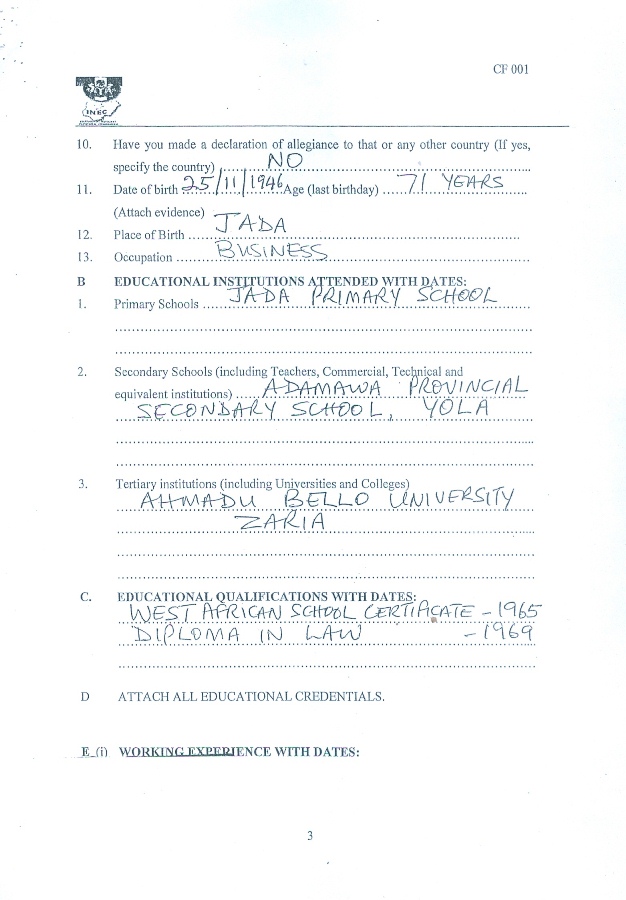 CF 001
INEC
10. Have you made a declaration of allegiance to that or any other country (If yes,
specify the country) NO
11. Date of birth 25/11/1946 Age (last birthday) 71 YEARS
(Attach evidence)
12. Place of Birth JADA
13. Occupation BUSINESS
B EDUCATIONAL INSTITUTIONS ATTENDED WITH DATES:
1. Primary Schools JADA PRIMARY SCHOOL
2. Secondary Schools (including Teachers, Commercial, Technical and
equivalent institutions) ADAMAWA PROVINCIAL
SECONDARY SCHOOL, YOLA
3. Tertiary institutions (including Universities and Colleges)
AHMADU BELLO UNIVERSITY
ZARIA
C. EDUCATIONAL QUALIFICATIONS WITH DATES:
WEST AFRICAN SCHOOL CERTIFICATE - 1965
DIPLOMA IN LAW - 1969
D ATTACH ALL EDUCATIONAL CREDENTIALS.
E (i) WORKING EXPERIENCE WITH DATES:
3